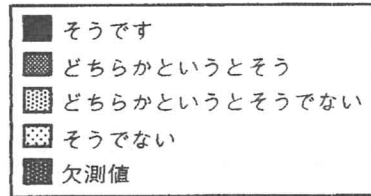 そうです
どちらかというとそう
どちらかというとそうでない
そうでない
欠測値